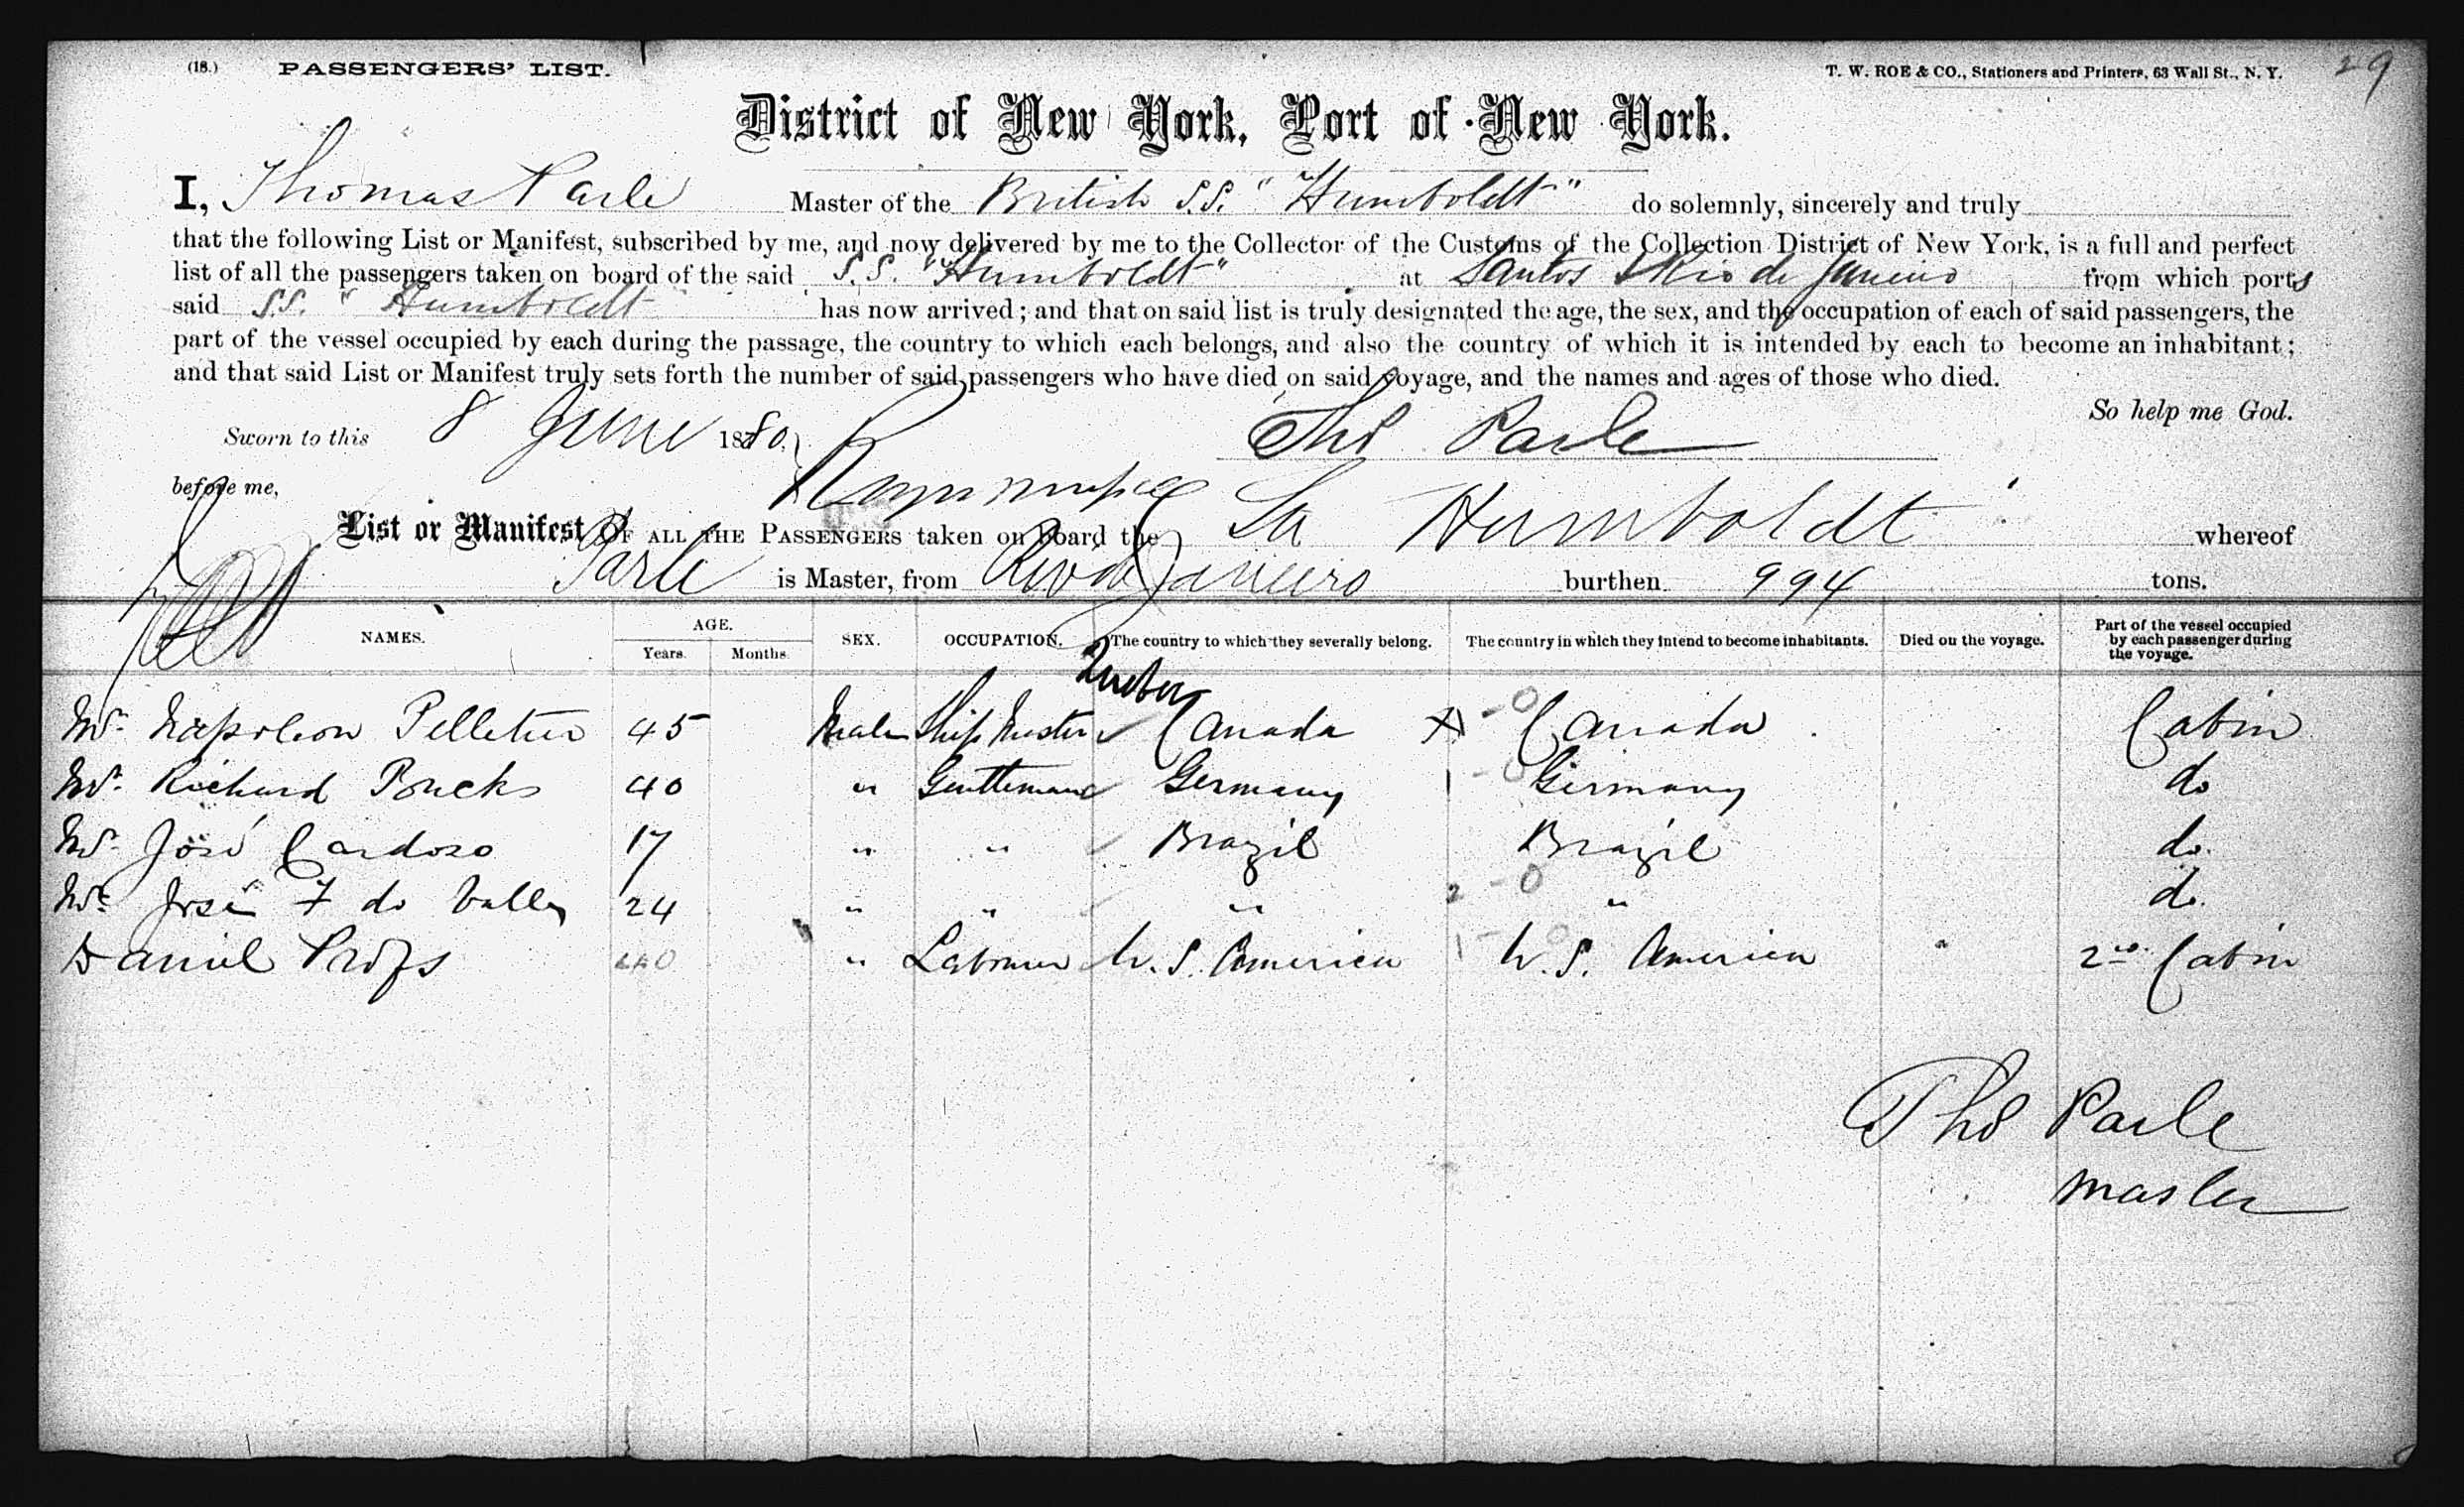 (18.) PASSENGERS' LIST. T. W. ROE & CO., Stationers and Printers, 63 Wall St., N. Y. 29
District of New York, Port of New York.
I, Thomas Parle Master of the British S.S. "Humboldt" do solemnly, sincerely and truly
that the following List or Manifest, subscribed by me, and now delivered by me to the Collector of the Customs of the Collection District of New York, is a full and perfect
list of all the passengers taken on board of the said S.S. "Humboldt" at Santos & Rio de Janeiro from which ports
said S.S. "Humboldt" has now arrived; and that on said list is truly designated the age, the sex, and the occupation of each of said passengers, the
part of the vessel occupied by each during the passage, the country to which each belongs, and also the country of which it is intended by each to become an inhabitant;
and that said List or Manifest truly sets forth the number of said passengers who have died on said voyage, and the names and ages of those who died.
So help me God.
Sworn to this 8 June 1880. Thos Parle
before me,
List or Manifest OF ALL THE PASSENGERS taken on board the Humboldt whereof
Parle is Master, from Rio de Janeiro burthen 994 tons.
NAMES. AGE. Years. Months. SEX. OCCUPATION. The country to which they severally belong. The country in which they intend to become inhabitants. Died on the voyage. Part of the vessel occupied by each passenger during the voyage.
Quebec
Mr. Napoleon Pelletier 45 Male Ship Master Canada Canada Cabin
Mr. Richard 40 " Gentleman Germany 1 - 0 Germany do
Mr. José Cardoso 17 " " Brazil Brazil do.
Mr. José F do Valle 24 " " " 2 - 0 " do.
Daniel 40 " Labourer U. S. America 1 - 0 U. S. America 2nd Cabin
Thos Parle
Master